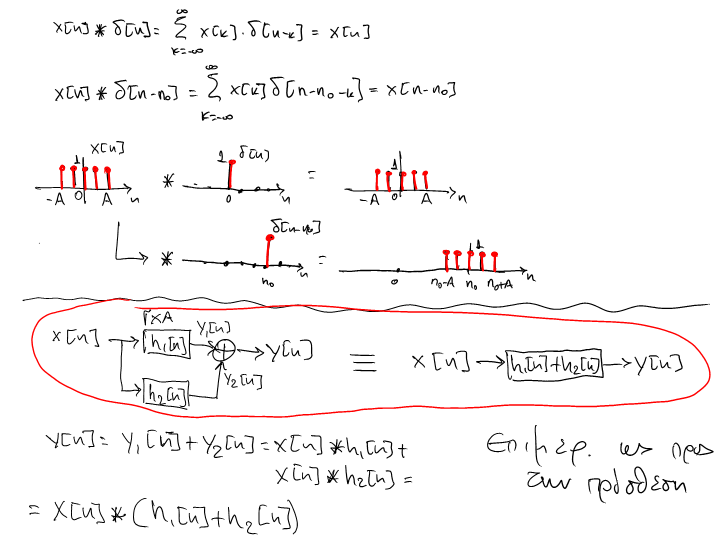 x[n] * δ[n] = ∞ Σ k=-∞ x[k]·δ[n-k] = x[n]
x[n] * δ[n-n₀] = ∞ Σ k=-∞ x[k] δ[n-n₀-k] = x[n-n₀]
x[n] 1 -A 0 A n * 1 δ[n] 0 n = 1 -A 0 A n
* δ[n-n₀] n₀ n = 1 0 n₀-A n₀ n₀+A n
ΓΧΑ
x[n] → h₁[n] y₁[n] + → y[n] ≡ x[n] → h₁[n]+h₂[n] → y[n]
h₂[n] y₂[n]
y[n] = y₁[n] + y₂[n] = x[n] * h₁[n] +
x[n] * h₂[n] =
= x[n] * (h₁[n]+h₂[n])
Επιμερ. ως προς
την πρόσθεση